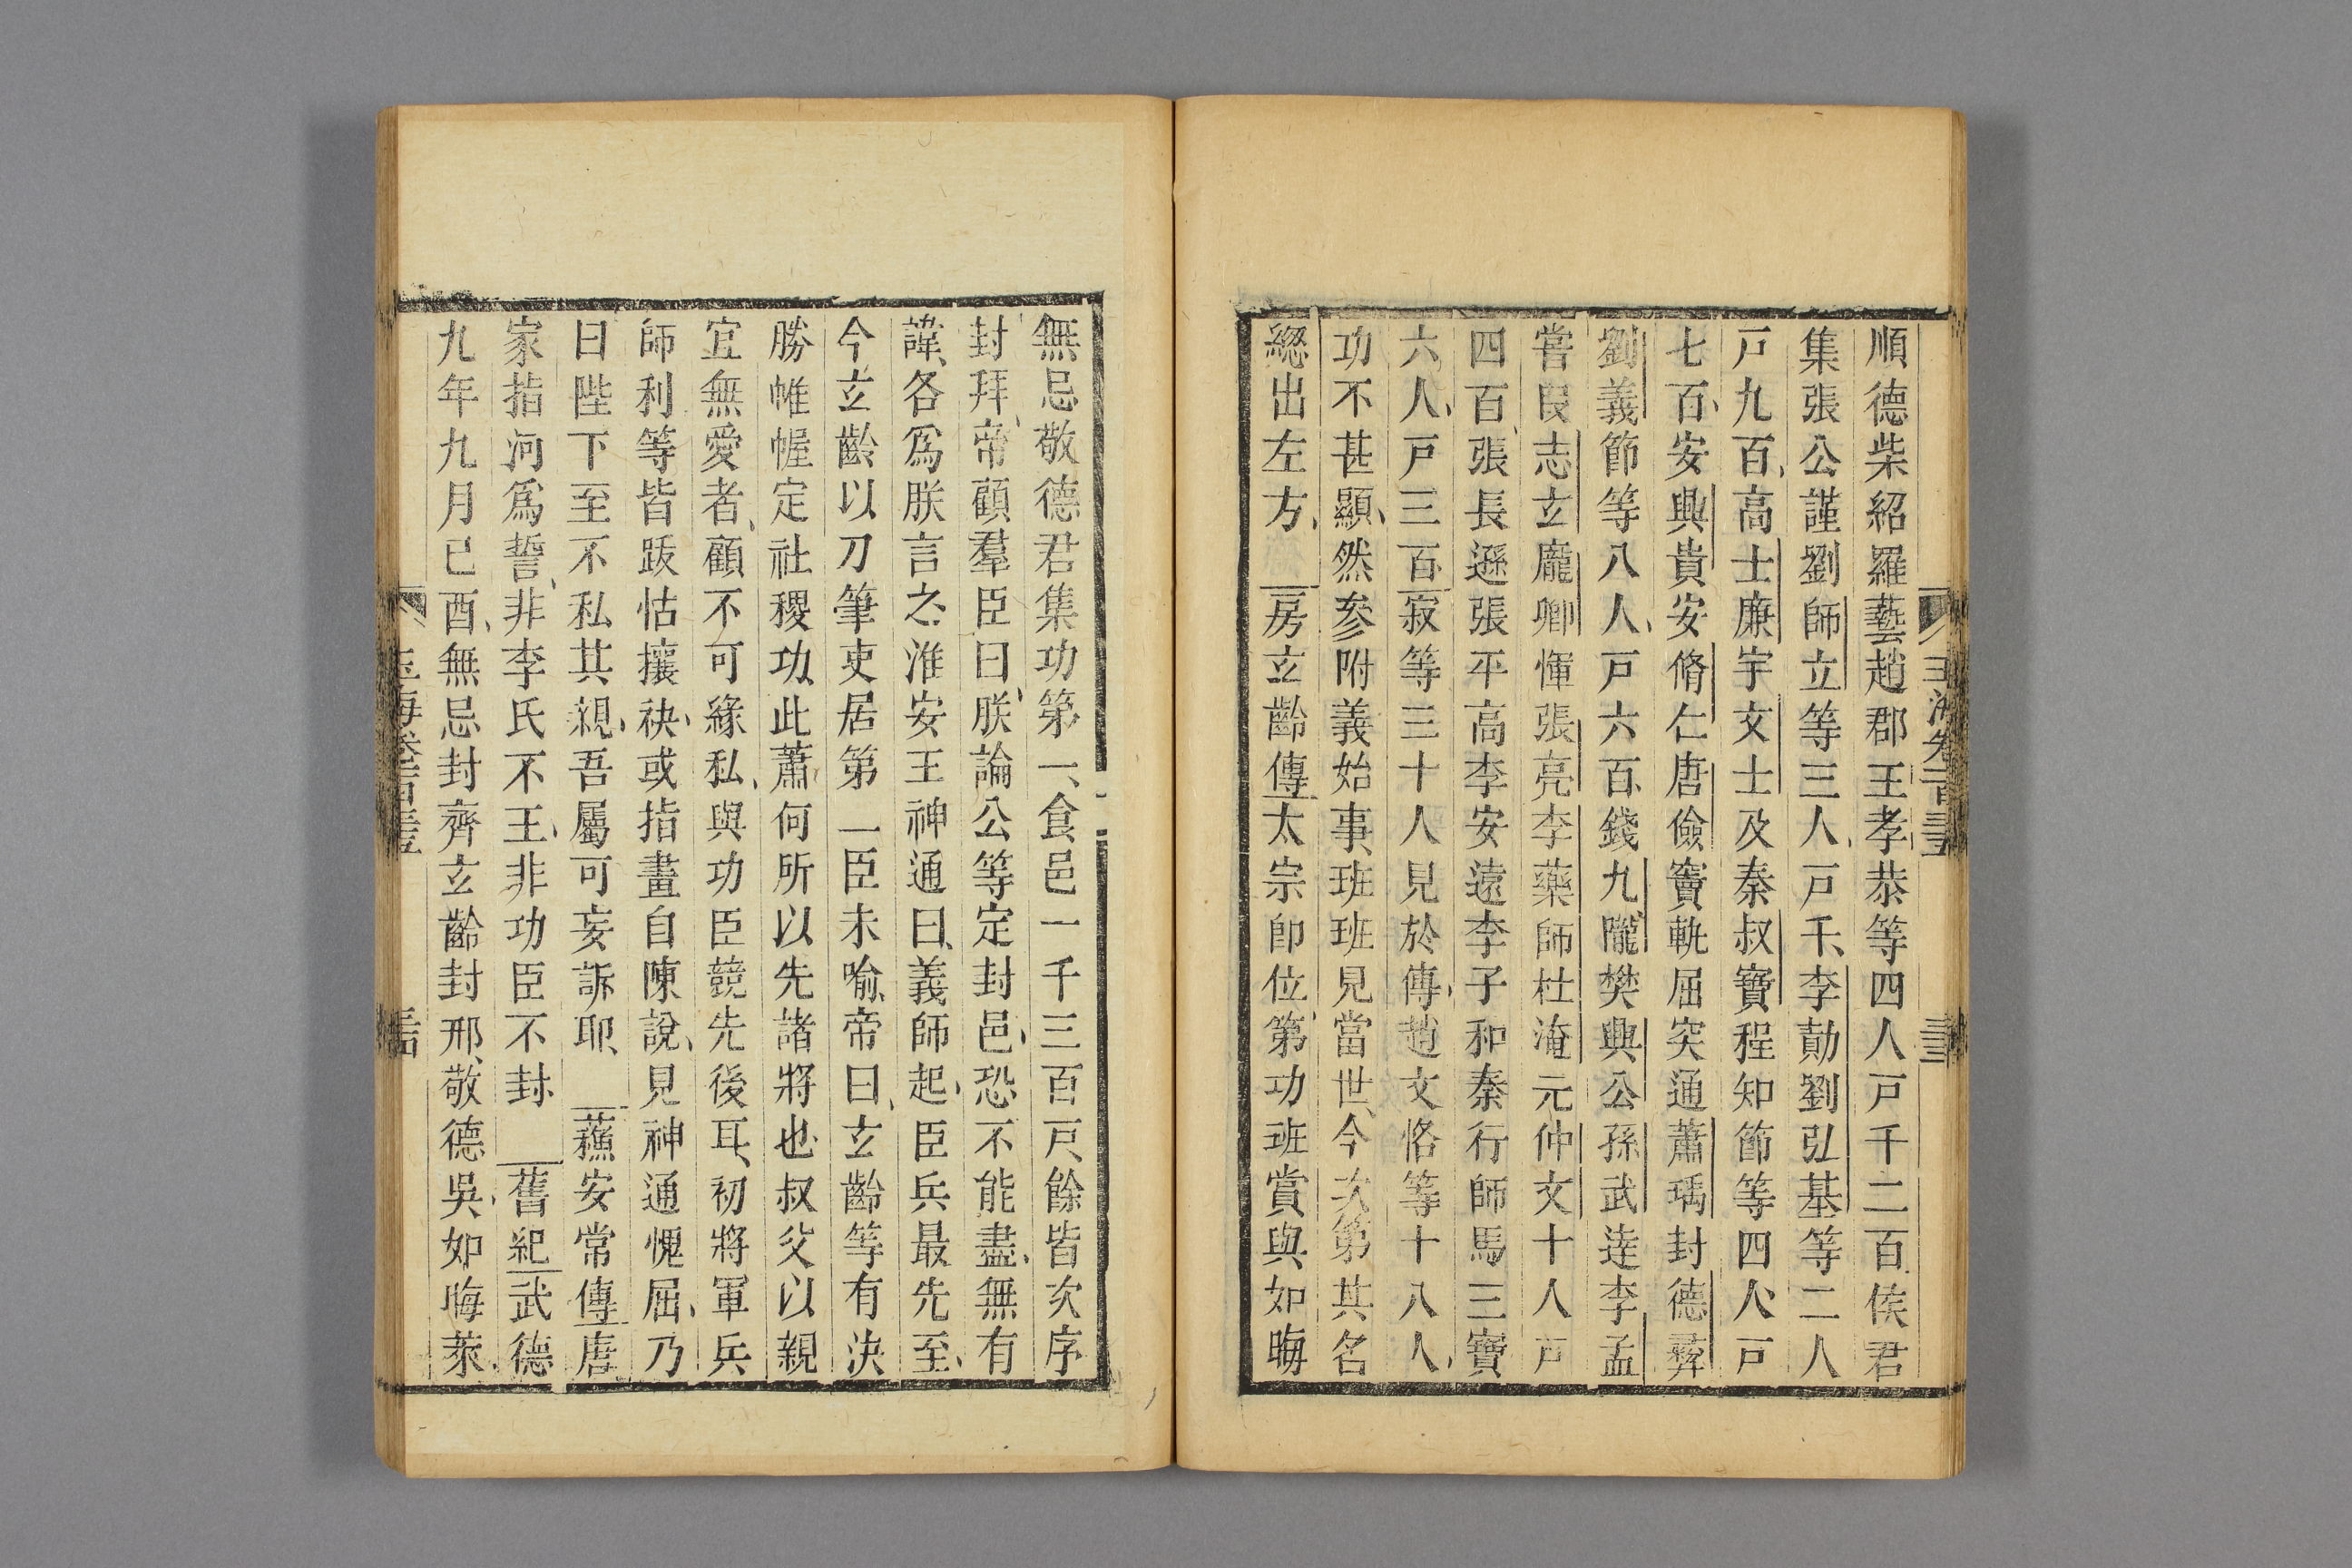 順德柴紹羅藝趙郡王孝恭等四人戸千二百侯君
集張公謹劉師立等三人戸千李勣劉弘基等二人
戸九百高士廉宇文士及秦叔寶程知節等四人戸
七百安興貴安脩仁唐儉竇軌屈突通蕭瑀封德彞
劉義節等八人戸六百錢九隴樊興公孫武逹李孟
嘗叚志玄龐卿惲張亮李藥師杜淹元仲文十人戸
四百張長遜張平高李安遠李子和秦行師馬三寶
六人戸三百寂等三十人見於傳趙文恪等十八人
功不甚顯然參附義始事班班見當世今次第其名
緫出左方 房玄齡傳太宗即位第功班賞與如晦
無忌敬德君集功第一食邑一千三百戸餘皆次序
封拜帝顧羣臣曰朕論公等定封邑恐不能盡無有
諱各爲朕言之淮安王神通曰義師起臣兵最先至
今玄齡以刀筆吏居第一臣未喻帝曰玄齡等有決
勝帷幄定社稷功此蕭何所以先諸將也叔父以親
宜無愛者顧不可緣私與功臣競先後耳初將軍兵
師利等皆跋怙攘袂或指畫自陳說見神通愧屈乃
曰陛下至不私其親吾屬可妄訴耶 蘓安常傳唐
家指河爲誓非李氏不王非功臣不封 舊紀武德
九年九月已酉無忌封齊玄齡封邢敬德吳如晦萊